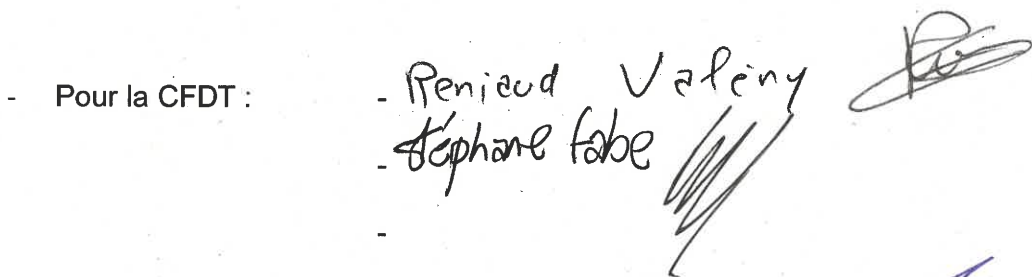 - Pour la CFDT : - Reniaud Valény
- Stéphane fabe
-